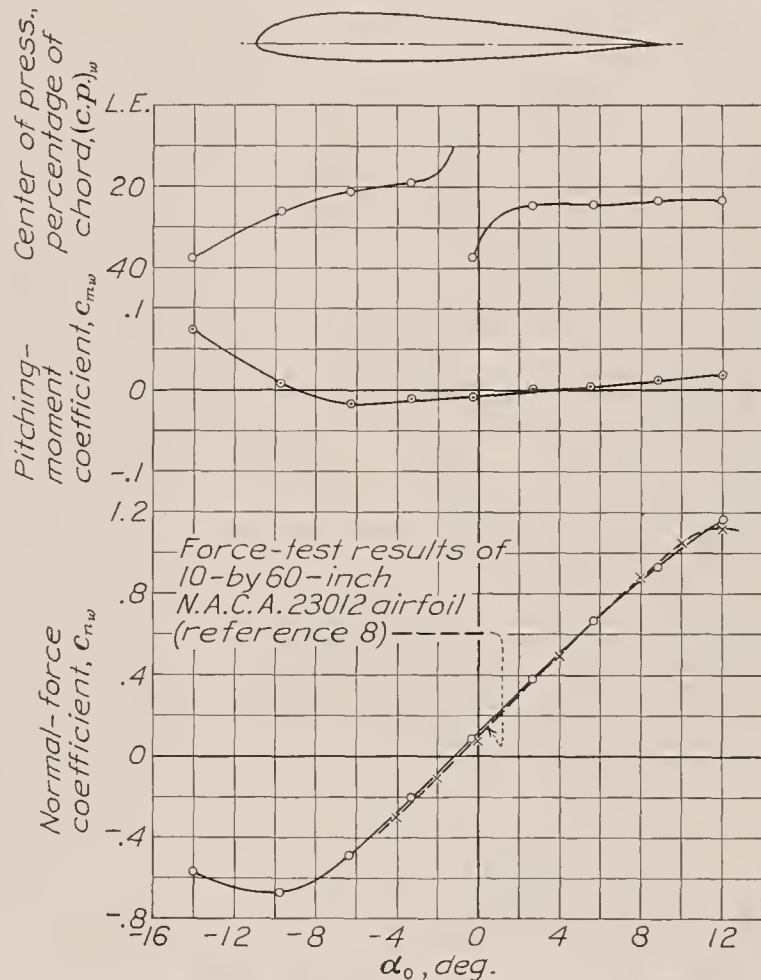 Center of press.,
percentage of
chord,(c.p.)w
L.E.
20
40
Pitching-
moment
coefficient, cmw
.1
0
-.1
Normal-force
coefficient, cnw
1.2
.8
.4
0
-.4
-.8
Force-test results of
10-by 60-inch
N.A.C.A. 23012 airfoil
(reference 8)
-16 -12 -8 -4 0 4 8 12
α₀, deg.